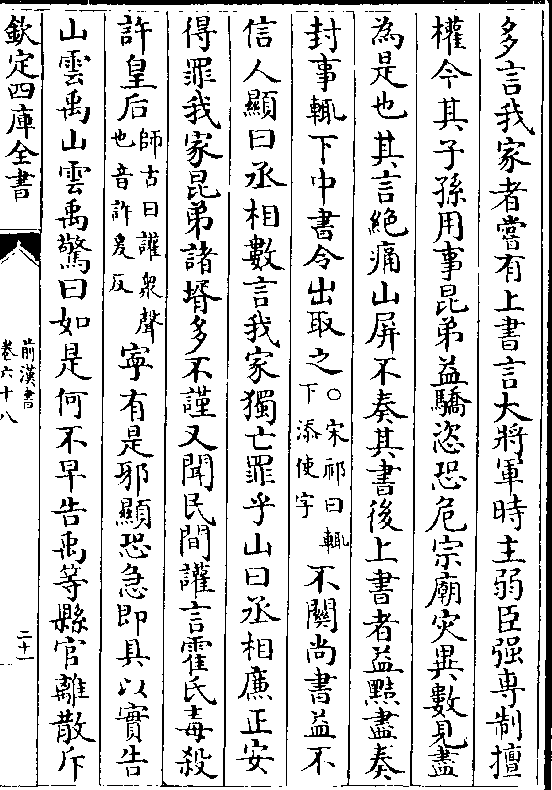 多言我家者嘗有上書言大將軍時主弱臣强專制擅
權今其子孫用事昆弟益驕恣恐危宗廟灾異數見盡
為是也其言絶痛山屏不奏其書後上書者益黠盡奏
封事輒下中書令出取之○宋祁曰輒下添使字不關尚書益不
信人顯曰丞相數言我家獨亡罪乎山曰丞相廉正安
得罪我家昆弟諸壻多不謹又聞民間讙言霍氏毒殺
許皇后師古曰讙衆聲也音許爰反寧有是邪顯恐急即具以實告
山雲禹山雲禹驚曰如是何不早告禹等縣官離散斥
欽定四庫全書
前漢書
卷六十八
二十一